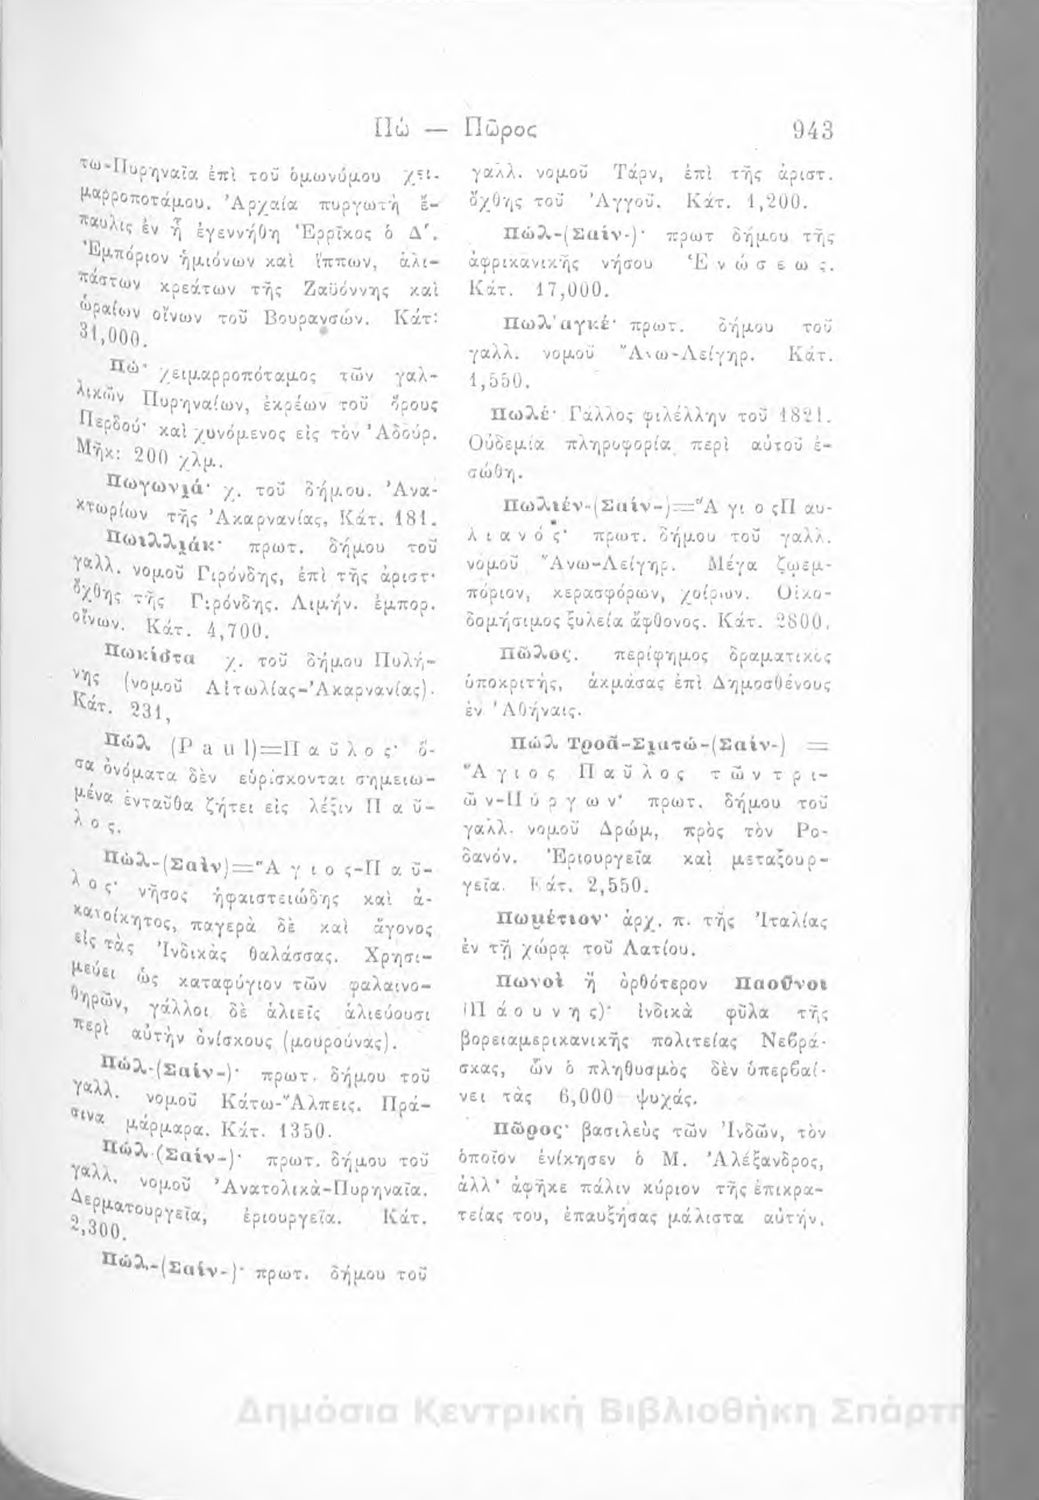 Πώ — Πῶρος 943
τω-Πυρηναῖα ἐπὶ τοῦ ὁμωνύμου χει-
μαρροποτάμου. Ἀρχαία πυργωτὴ ἔ-
παυλις ἐν ᾗ ἐγεννήθη Ἐρρῖκος ὁ Δ΄.
Ἐμπόριον ἡμιόνων καὶ ἵππων, ἁλι-
πάστων κρεάτων τῆς Ζαϋόννης καὶ
ὡραίων οἴνων τοῦ Βουρανσών. Κάτ:
31,000.
Πώ· χειμαρροπόταμος τῶν γαλ-
λικῶν Πυρηναίων, ἐκρέων τοῦ ὄρους
Περδού· καὶ χυνόμενος εἰς τὸν Ἀδούρ.
Μῆκ: 200 χλμ.
Πωγωνιά· χ. τοῦ δήμου. Ἀνα-
κτωρίων τῆς Ἀκαρνανίας, Κάτ. 181.
Πωιλλιάκ· πρωτ. δήμου τοῦ
γαλλ. νομοῦ Γιρόνδης, ἐπὶ τῆς ἀριστ·
ὄχθης τῆς Γιρόνδης. Λιμήν. ἐμπορ.
οἴνων. Κάτ. 4,700.
Πωκίστα χ. τοῦ δήμου Πυλή-
νης (νομοῦ Αἰτωλίας-Ἀκαρνανίας).
Κάτ. 231,
Πώλ (Paul)=Παῦλος· ὅ-
σα ὀνόματα δὲν εὑρίσκονται σημειω-
μένα ἐνταῦθα ζήτει εἰς λέξιν Παῦ-
λος.
Πώλ-(Σαὶν)=Ἅγιος-Παῦ-
λος· νῆσος ἡφαιστειώδης καὶ ἀ-
κατοίκητος, παγερὰ δὲ καὶ ἄγονος
εἰς τὰς Ἰνδικὰς θαλάσσας. Χρησι-
μεύει ὡς καταφύγιον τῶν φαλαινο-
θηρῶν, γάλλοι δὲ ἁλιεῖς ἁλιεύουσι
περὶ αὐτὴν ὀνίσκους (μουρούνας).
Πώλ-(Σαίν-)· πρωτ. δήμου τοῦ
γαλλ. νομοῦ Κάτω-Ἄλπεις. Πρά-
σινα μάρμαρα. Κάτ. 1350.
Πώλ-(Σαίν-)· πρωτ. δήμου τοῦ
γαλλ. νομοῦ Ἀνατολικὰ-Πυρηναῖα.
Δερματουργεῖα, ἐριουργεῖα. Κάτ.
2,300.
Πώλ-(Σαίν-)· πρωτ. δήμου τοῦ
γαλλ. νομοῦ Τάρν, ἐπὶ τῆς ἀριστ.
ὄχθης τοῦ Ἀγγοῦ. Κάτ. 1,200.
Πώλ-(Σαίν-)· πρωτ δήμου τῆς
ἀφρικανικῆς νήσου Ἑνώσεως.
Κάτ. 17,000.
Πωλ'αγκέ· πρωτ. δήμου τοῦ
γαλλ. νομοῦ Ἄνω-Λείγηρ. Κάτ.
1,550.
Πωλέ· Γάλλος φιλέλλην τοῦ 1821.
Οὐδεμία πληροφορία περὶ αὐτοῦ ἐ-
σώθη.
Πωλιέν-(Σαίν-)=Ἅγιος Παυ-
λιανός· πρωτ. δήμου τοῦ γαλλ.
νομοῦ Ἄνω-Λείγηρ. Μέγα ζωεμ-
πόριον, κερασφόρων, χοίρων. Οἰκο-
δομήσιμος ξυλεία ἄφθονος. Κάτ. 2800.
Πῶλος. περίφημος δραματικὸς
ὑποκριτής, ἀκμάσας ἐπὶ Δημοσθένους
ἐν Ἀθήναις.
Πώλ Τροᾶ-Σιατώ-(Σαίν-) =
Ἅγιος Παῦλος τῶν τρι-
ῶν-Πύργων· πρωτ. δήμου τοῦ
γαλλ. νομοῦ Δρώμ, πρὸς τὸν Ρο-
δανόν. Ἐριουργεῖα καὶ μεταξουρ-
γεῖα. Κάτ. 2,550.
Πωμέτιον· ἀρχ. π. τῆς Ἰταλίας
ἐν τῇ χώρᾳ τοῦ Λατίου.
Πωνοὶ ἢ ὀρθότερον Παοῦνοι
(Πάουνης)· ἰνδικὰ φῦλα τῆς
βορειαμερικανικῆς πολιτείας Νεβρά-
σκας, ὧν ὁ πληθυσμὸς δὲν ὑπερβαί-
νει τὰς 6,000 ψυχάς.
Πῶρος· βασιλεὺς τῶν Ἰνδῶν, τὸν
ὁποῖον ἐνίκησεν ὁ Μ. Ἀλέξανδρος,
ἀλλ' ἀφῆκε πάλιν κύριον τῆς ἐπικρα-
τείας του, ἐπαυξήσας μάλιστα αὐτήν.
Δημόσια Κεντρική Βιβλιοθήκη Σπάρτη